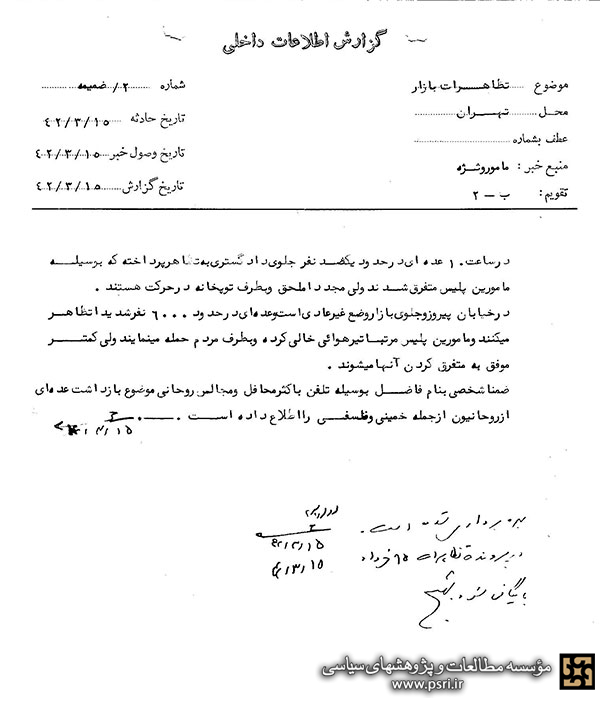 گزارش اطلاعات داخلی
موضوع ...... تظاهرات بازار
شماره ...... /۲ ضمیمه ......
محل ...... تهران ......
تاریخ حادثه ...... ۴۲/۳/۱۵
عطف بشماره ......
تاریخ وصول خبر ۴۲/۳/۱۵
منبع خبر : مامور وشژه
تاریخ گزارش ...... ۴۲/۳/۱۵
تقویم : ب – ۲
درساعت ۱۰ عده ای درحدود یکصد نفر جلوی دادگستری به تظاهر پرداخته که بوسیله
مامورین پلیس متفرق شدند ولی مجددا ملحق وبطرف توپخانه درحرکت هستند .
درخیابان پیروز وجلوی بازار وضع غیرعادی است وعده ای درحدود ۶۰۰۰ نفر شدیدا تظاهر
میکنند ومامورین پلیس مرتبا تیرهوائی خالی کرده وبطرف مردم حمله مینمایند ولی کمتر
موفق به متفرق کردن آنها میشوند .
ضمنا شخصی بنام فاضل بوسیله تلفن باکثر محافل ومجالس روحانی موضوع بازداشت عده ای
از روحانیون ازجمله خمینی وفلسفی را اطلاع داده است .
۴۲/۳/۱۵
بهره برداری شده است .
۴۲/۳/۱۵
در پرونده تظاهرات ۱۵ خرداد
۴۲/۳/۱۵
بایگانی شود
مؤسسه مطالعات و پژوهشهای سیاسی
www.psri.ir